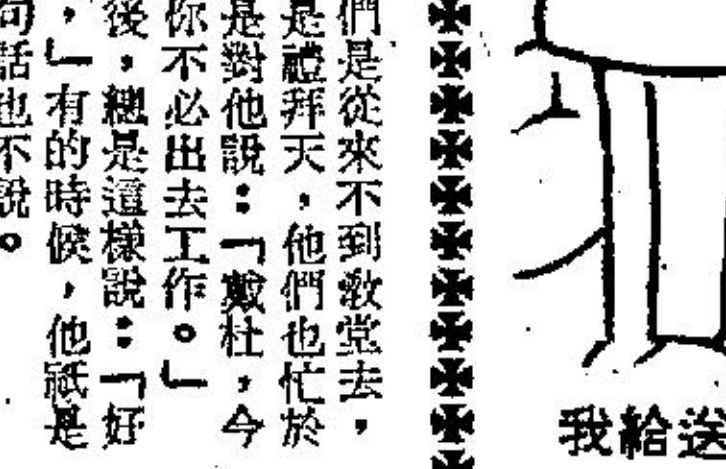 我給送
們是從來不到敎堂去，
是禮拜天，他們也忙於
是對他說：「戴杜，今
你不必出去工作。」
後，總是這樣說：「好
，」有的時候，他祇是
句話也不說。